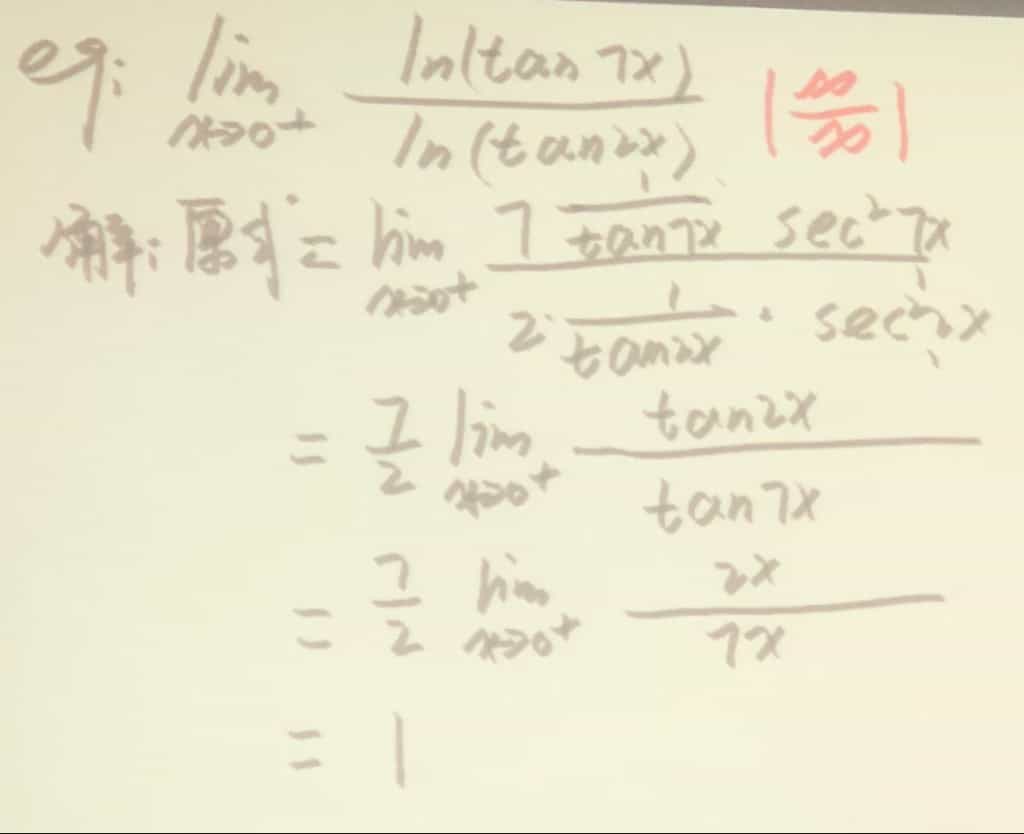 eg: lim x→0⁺ ln(tan 7x) / ln(tan2x) |∞/∞|
解: 原式 = lim x→0⁺ 7 1/tan7x sec²7x / 2·1/tan2x · sec²2x
= 7/2 lim x→0⁺ tan2x / tan7x
= 7/2 lim x→0⁺ 2x / 7x
= 1